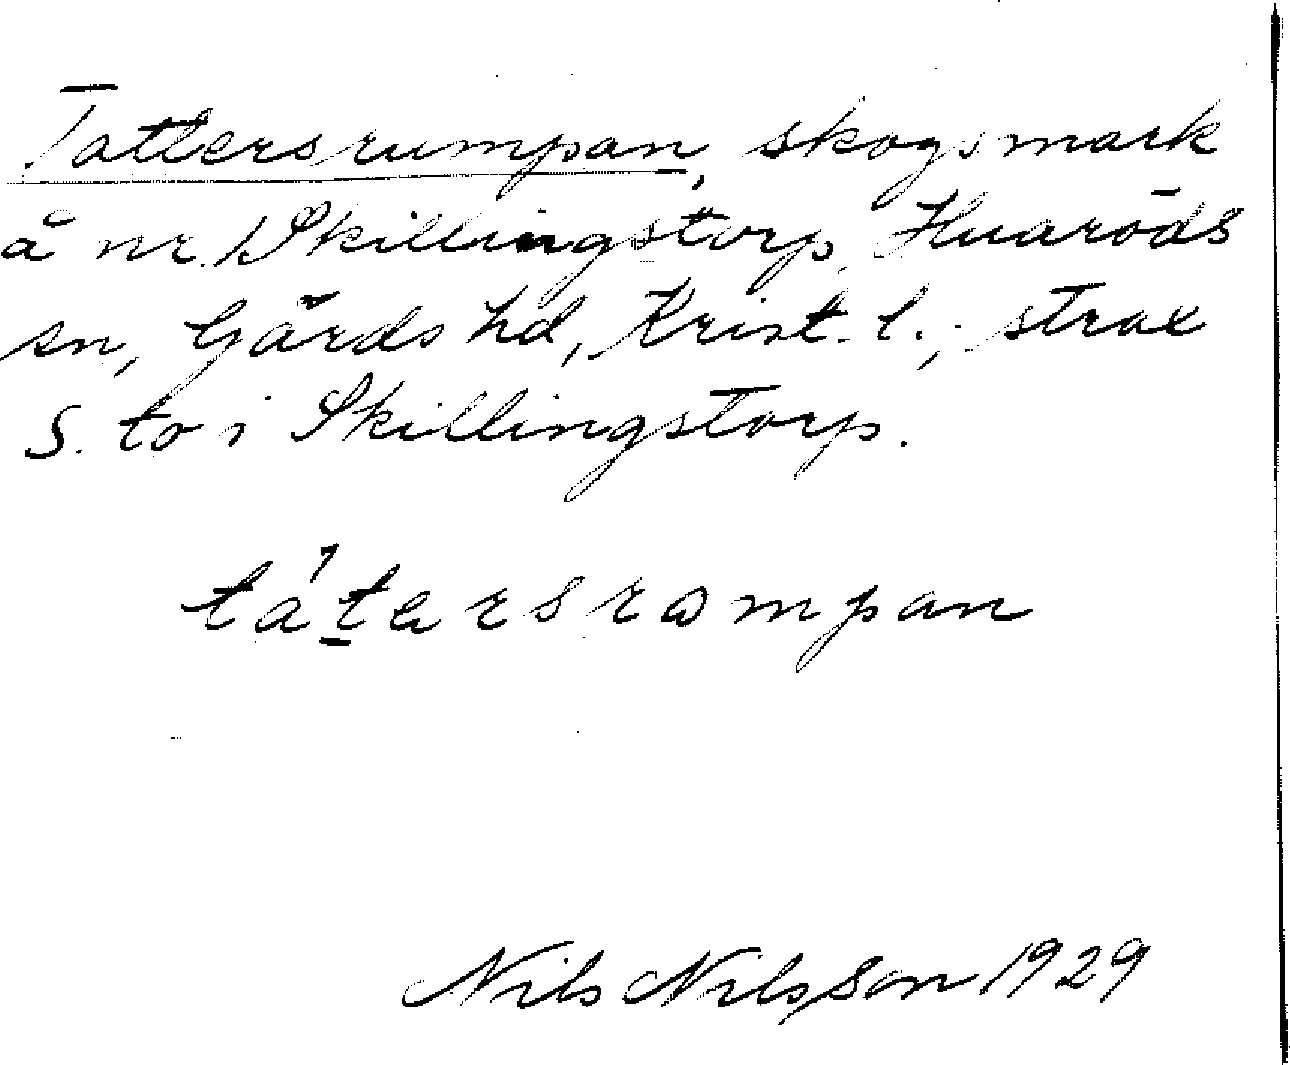 Tattersrumpan, skogsmark
å nr 1 Skillingstorp, Huaröds
sn, Gärds hd, Krist. l.; strax
S. to i Skillingstorp.
tátersrompan
Nils Nilsson 1929